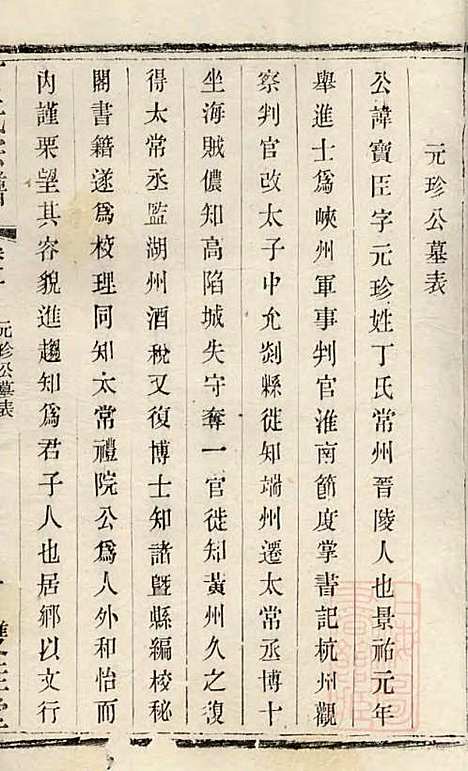 元珍公墓表
公諱寶臣字元珍姓丁氏常州晉陵人也景祐元年
舉進士爲峽州軍事判官淮南節度掌書記杭州觀
察判官改太子中允剡縣徙知端州遷太常丞博士
坐海賊儂知高陷城失守奪一官徙知黃州久之復
得太常丞監湖州酒稅又復博士知諸暨縣編校秘
閣書籍遂爲校理同知太常禮院公爲人外和怡而
內謹栗望其容貌進趨知爲君子人也居鄉以文行
元珍公墓表